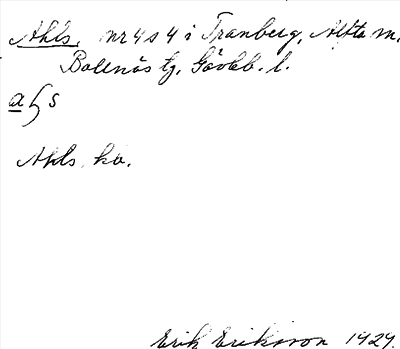 Ahls, nr 4 s 4 i Tranberg, Alfta sn.
Bollnäs tg, Gävleb. l.
aɧs
Ahls hå.
Erik Eriksson 1929.